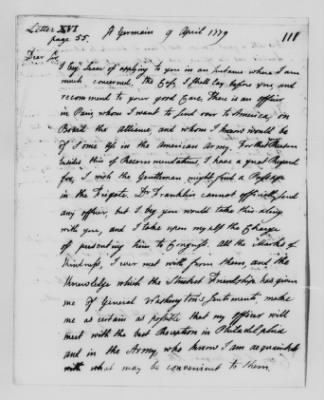 Letter XVI
page 55.
St Germain 9 April 1779
111
Dear Sir
I beg leave of applying to you in an instance where I am
much concerned. the Case I shall lay before you, and
recommend to your good Care. There is an officer
in Paris, whom I want to send over to America, on
Board the alliance, and whom I know would be
of some use in the American Army. For that Reason
besides this of Recommendation, I have a great Regard
for, I wish the Gentleman might find a Passage
in the Frigate. Dr Franklin cannot officially send
any officer, but I beg you would take this along
with you, and I take upon myself the Charge
of presenting him to Congress. All the Marks of
Kindness, I ever met with from them, and the
Knowledge which the Strictest Friendship has given
me of General Washington's Sentiments, make
me as certain as possible that my officer will
meet with the best Reception in Philadelphia
and in the Army, who know I am acquainted
with what may be convenient to them